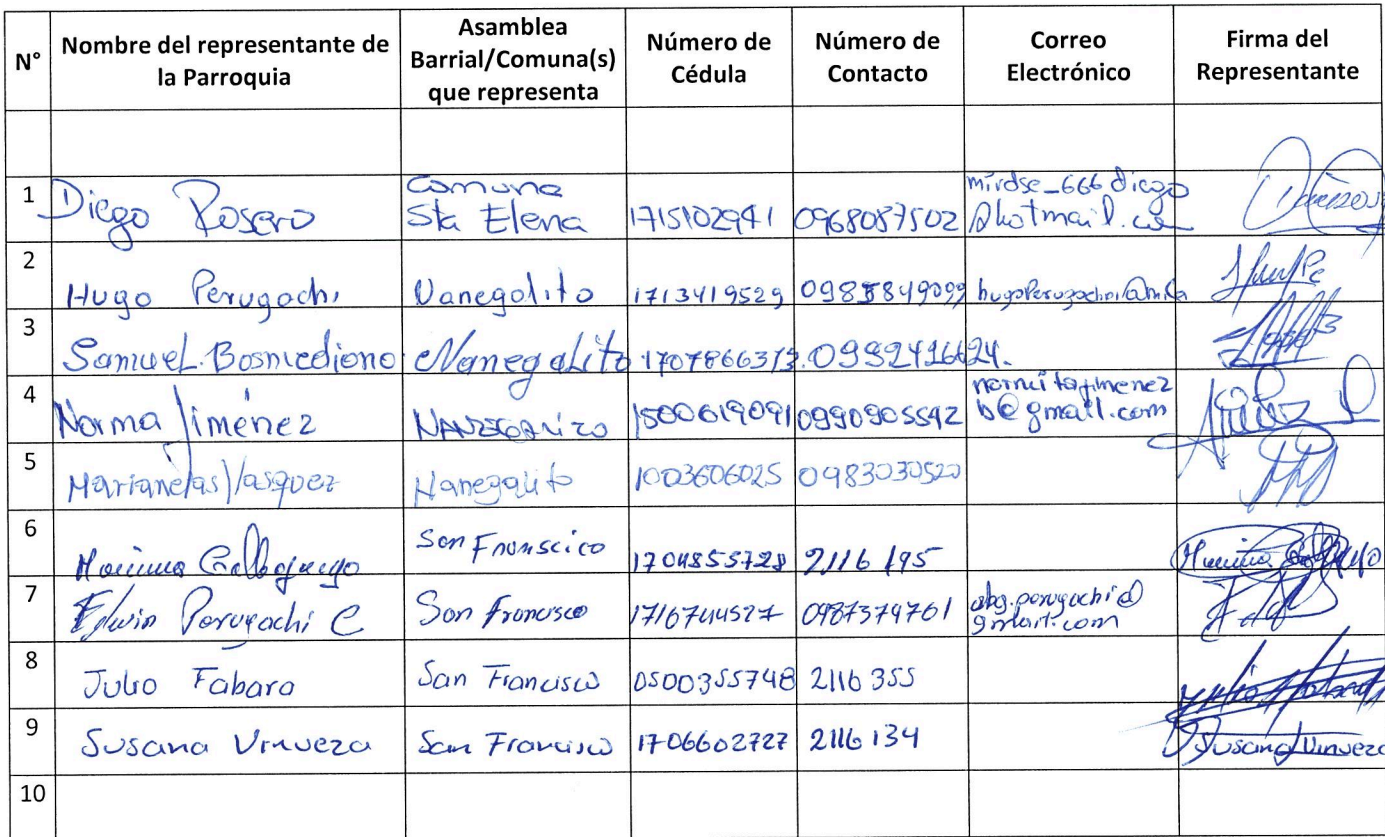 N° Nombre del representante de la Parroquia Asamblea Barrial/Comuna(s) que representa Número de Cédula Número de Contacto Correo Electrónico Firma del Representante
1 Diego Rosero Comuna Sta Elena 1715102941 0968087502 mirdse_666diego@hotmail.
2 Hugo Perugachi Nanegalito 1713419529
3 Samuel Bosmediano Nanegalito 1707866313 0992416624
4 Norma Jiménez 1500619091 0990905592 normitajimenezb@gmail.com
5 Marianelas Vasquez Nanegalito 1003606025 0983030520
6 1704855728 2116195
7 Edwin Perugachi C San Francisco 1716744527 0987379761 abg.perugachi@gmail.com
8 Julio Fabara San Francisco 0500355748 2116355
9 Susana Vinueza San Francisco 1706602727 2116134 Susana Vinueza
10